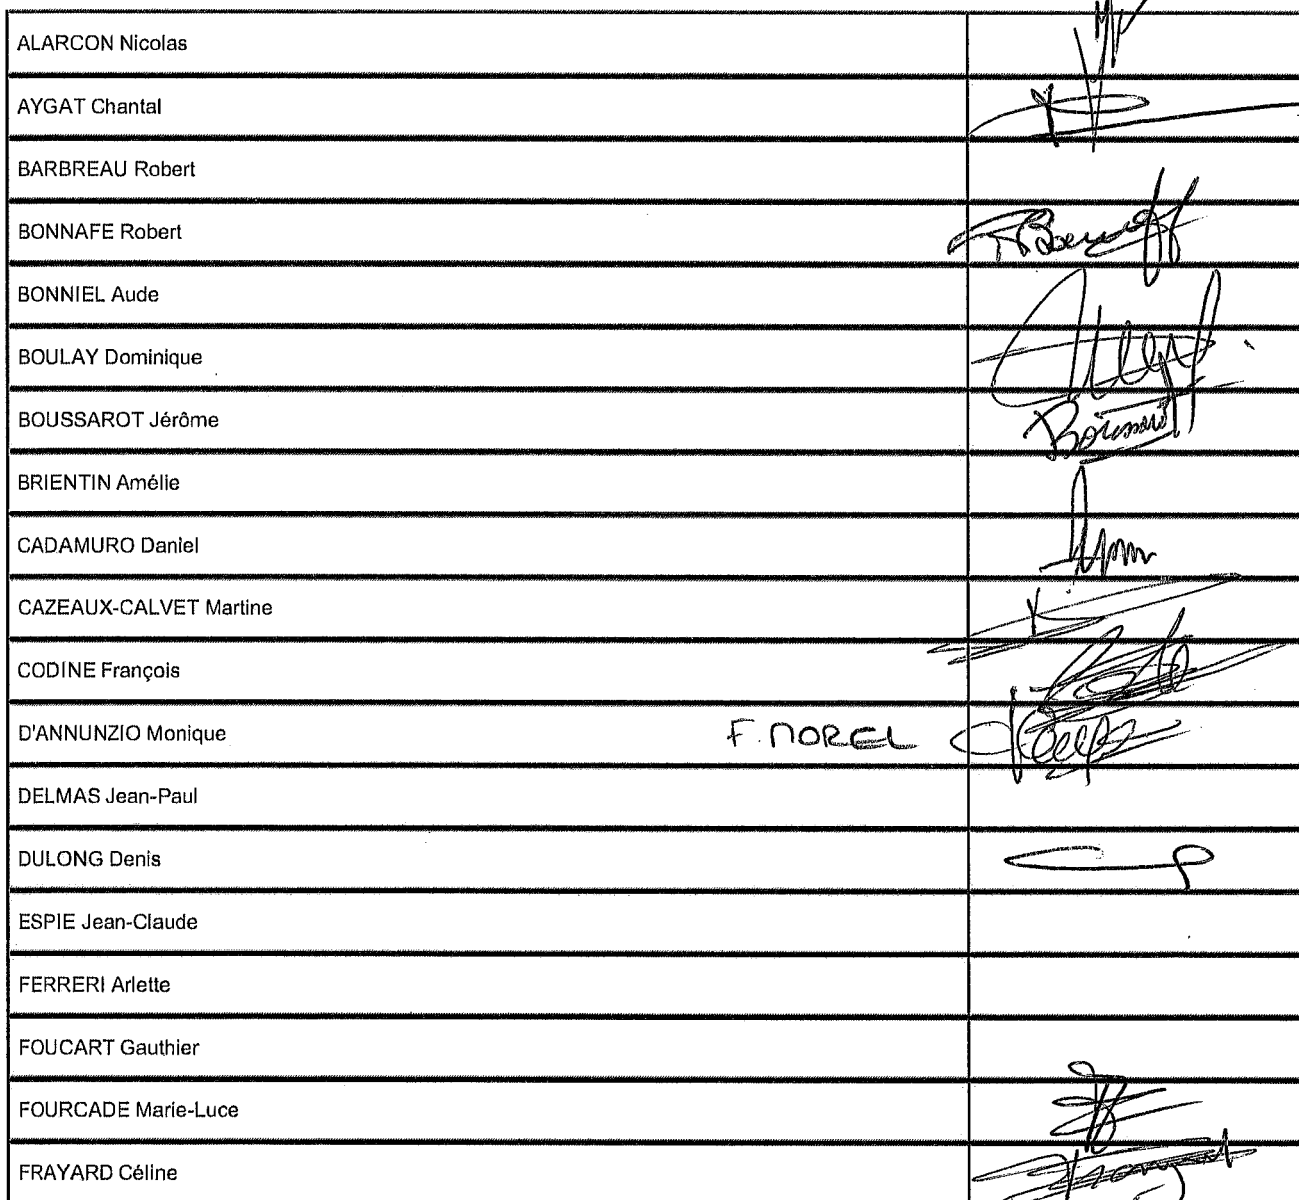 ALARCON Nicolas
AYGAT Chantal
BARBREAU Robert
BONNAFE Robert
BONNIEL Aude
BOULAY Dominique
BOUSSAROT Jérôme
BRIENTIN Amélie
CADAMURO Daniel
CAZEAUX-CALVET Martine
CODINE François
D'ANNUNZIO Monique F. MOREL
DELMAS Jean-Paul
DULONG Denis
ESPIE Jean-Claude
FERRERI Arlette
FOUCART Gauthier
FOURCADE Marie-Luce
FRAYARD Céline